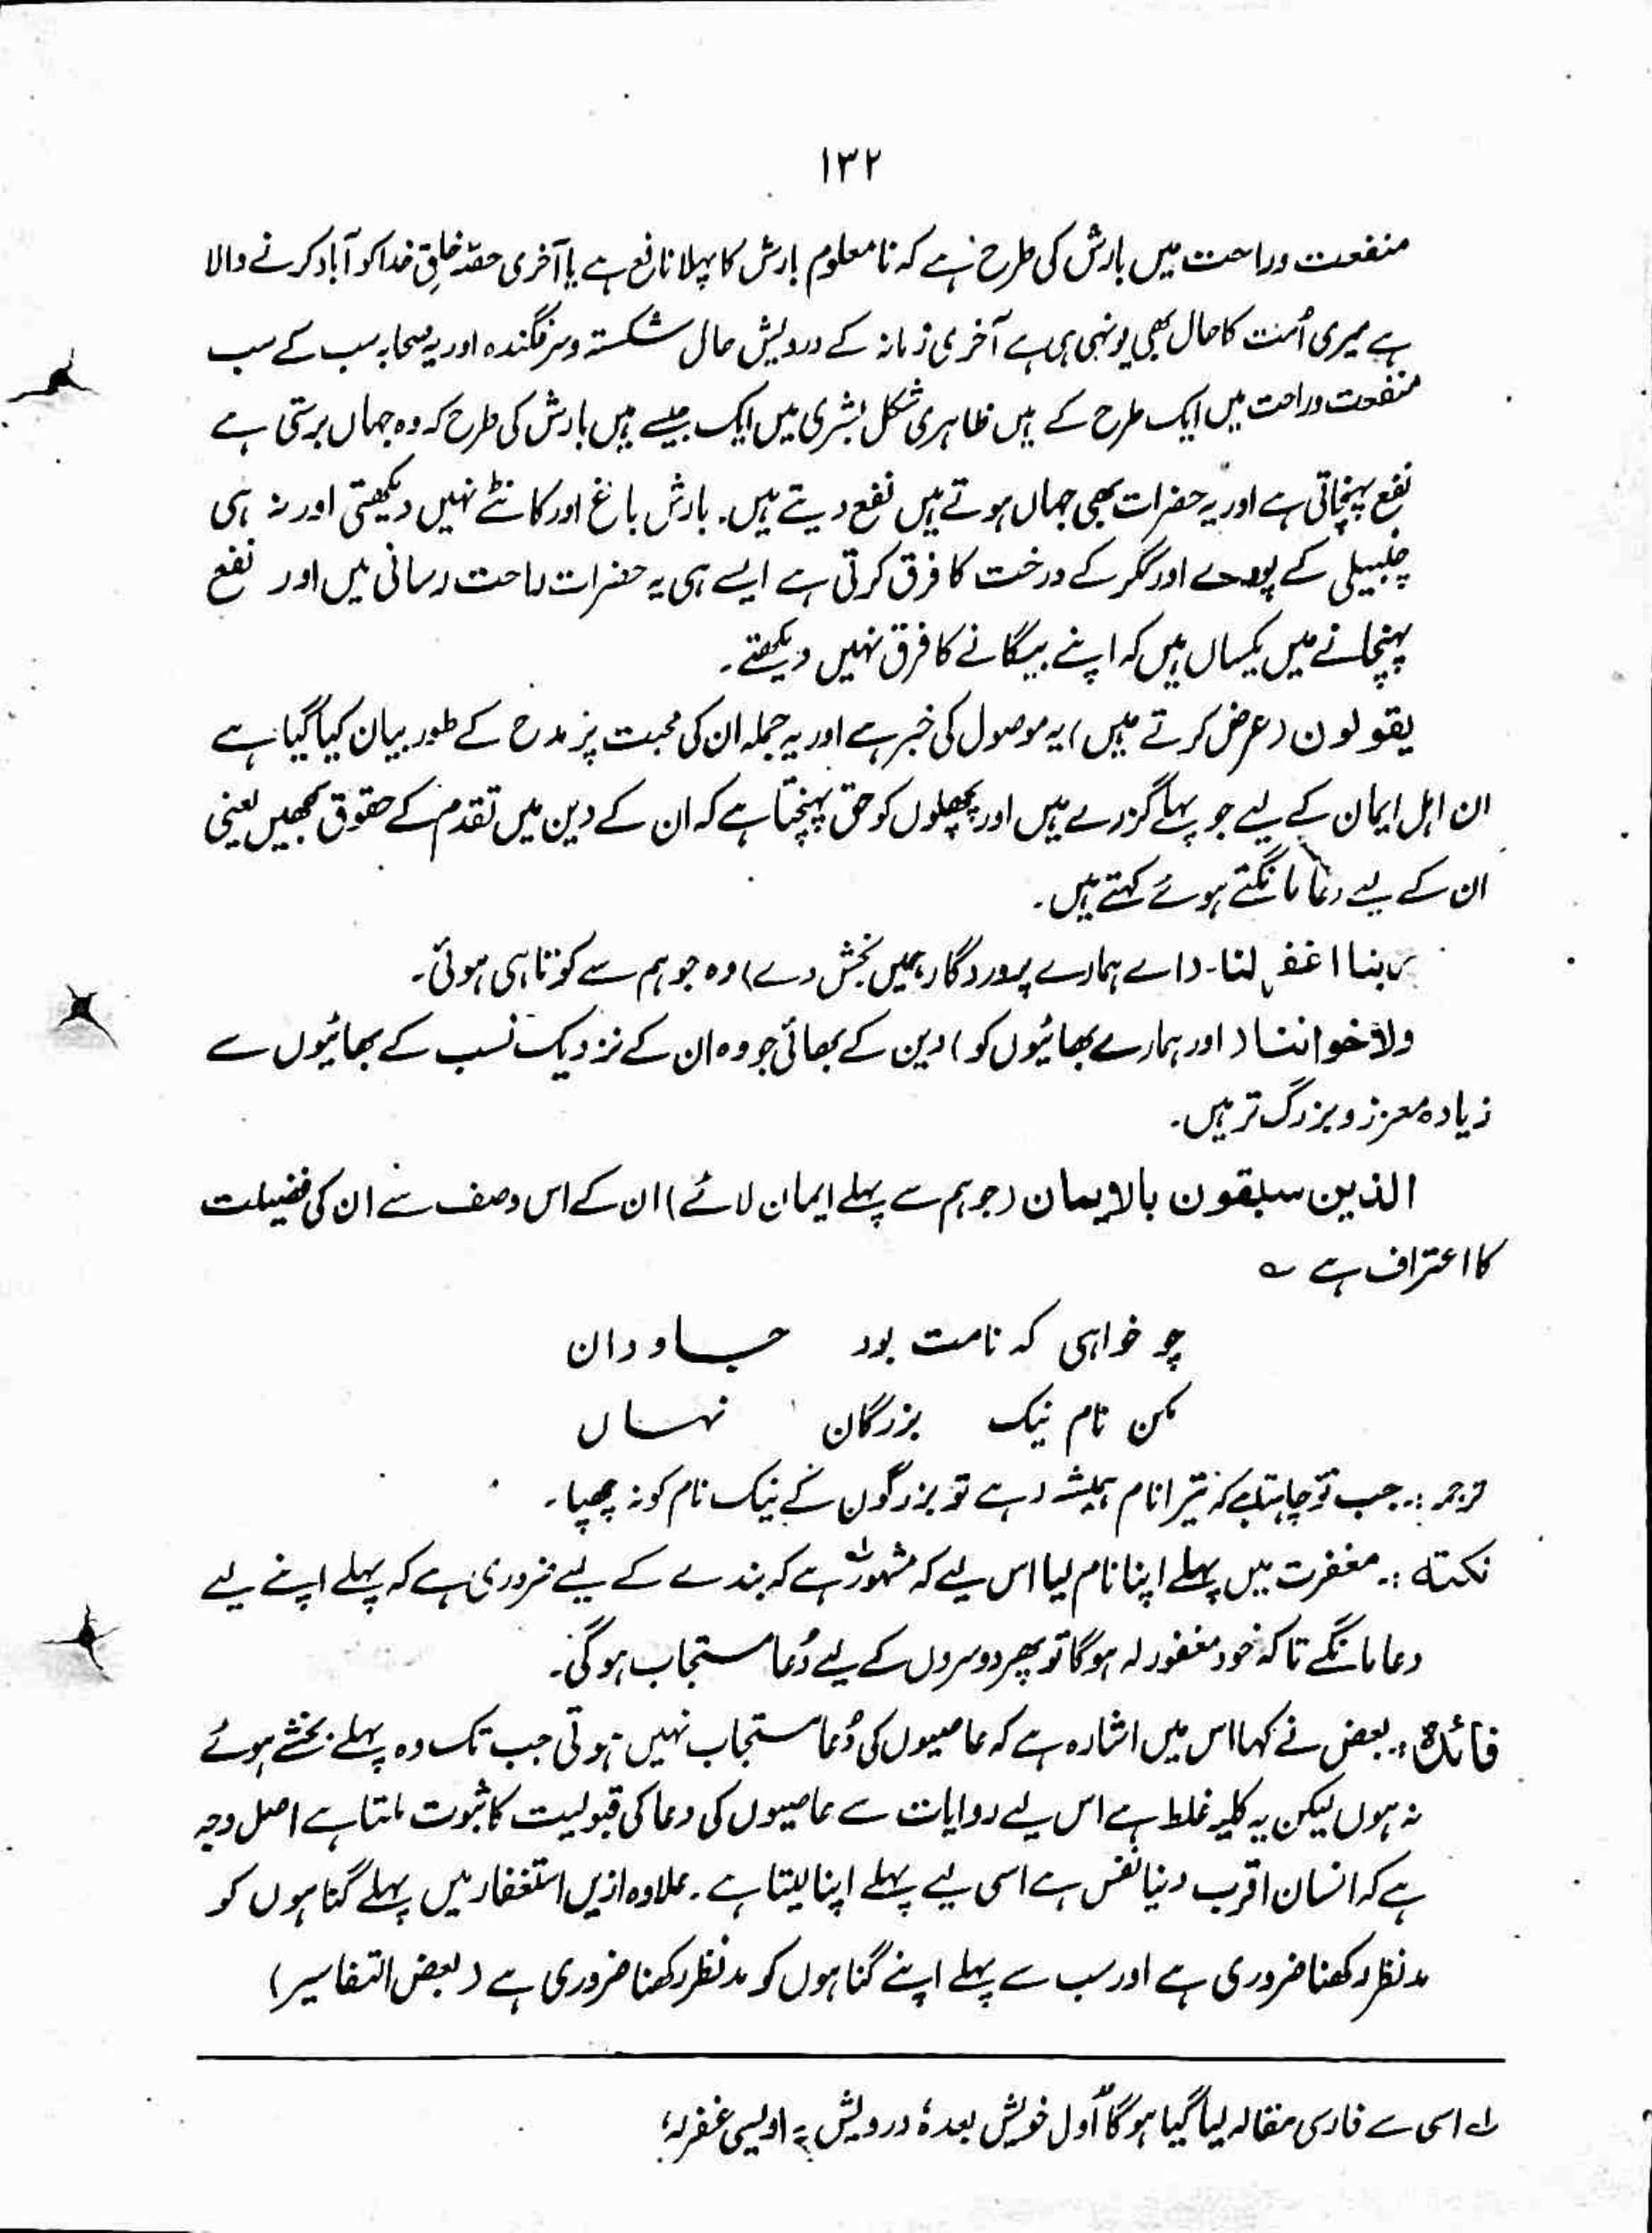 ۱۳۲
منفعت وراحت میں بارش کی طرح ہے کہ نامعلوم بارش کا پہلا نافع ہے یا آخری حصّہ خلقِ خدا کو آباد کرنے والا
ہے میری اُمت کا حال بھی یونہی ہی ہے آخری زمانہ کے درویش حال شکستہ وسرفگندہ اور یہ صحابہ سب کے سب
منفعت وراحت میں ایک طرح کے ہیں ظاہری شکل بشری میں ایک جیسے ہیں بارش کی طرح کہ وہ جہاں برستی ہے
نفع پہنچاتی ہے اور یہ حضرات بھی جہاں ہوتے ہیں نفع دیتے ہیں۔ بارش باغ اور کانٹے نہیں دیکھتی اور نہ ہی
چنبیلی کے پودے اور ککر کے درخت کا فرق کرتی ہے ایسے ہی یہ حضرات راحت رسانی میں اور نفع
پہنچانے میں یکساں ہیں کہ اپنے بیگانے کا فرق نہیں دیکھتے۔
یقولون (عرض کرتے ہیں) یہ موصول کی خبر ہے اور یہ جملہ ان کی محبت پر مدح کے طور بیان کیا گیا ہے
ان اہل ایمان کے لیے جو پہلے گزرے ہیں اور پچھلوں کو حق پہنچتا ہے کہ ان کے دین میں تقدم کے حقوق سمجھیں یعنی
ان کے لیے دعا مانگتے ہوئے کہتے ہیں۔
ربنا اغفر لنا۔ (اے ہمارے پروردگار ہمیں بخش دے) وہ جو ہم سے کوتاہی ہوئی۔
ولاخواننا (اور ہمارے بھائیوں کو) دین کے بھائی جو وہ ان کے نزدیک نسب کے بھائیوں سے
زیادہ معزز وبزرگ تر ہیں۔
الذین سبقون بالایمان (جو ہم سے پہلے ایمان لائے) ان کے اس وصف سے ان کی فضیلت
کا اعتراف ہے ؎
چو خواہی کہ نامت بود جاودان
مکن نام نیک بزرگان نہاں
ترجمہ :۔ جب تو چاہتا ہے کہ تیرا نام ہمیشہ رہے تو بزرگوں کے نیک نام کو نہ چھپا۔
نکتہ :۔ مغفرت میں پہلے اپنا نام لیا اس لیے کہ مشہور ہے کہ بندے کے لیے ضروری ہے کہ پہلے اپنے لیے
دعا مانگے تاکہ خود مغفور لہ ہوگا تو پھر دوسروں کے لیے دُعا مستجاب ہوگی۔
فائدہ :۔ بعض نے کہا اس میں اشارہ ہے کہ عاصیوں کی دُعا مستجاب نہیں ہوتی جب تک وہ پہلے بخشے ہوئے
نہ ہوں لیکن یہ کلیہ غلط ہے اس لیے روایات سے عاصیوں کی دعا کی قبولیت کا ثبوت ملتا ہے اصل وجہ
ہے کہ انسان اقرب دنیا نفس ہے اسی لیے پہلے اپنا لیتا ہے۔ علاوہ ازیں استغفار میں پہلے گناہوں کو
مدنظر رکھنا ضروری ہے اور سب سے پہلے اپنے گناہوں کو مدنظر رکھنا ضروری ہے (بعض التفاسیر)
لے اسی سے فارسی مقالہ لیا گیا ہوگا "اول خویش بعدہٗ درویش" اویسی غفرلہ؛